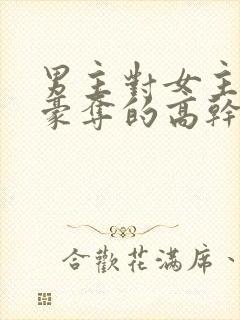 男主對女主
豪奪的高幹
合歡花滿席、